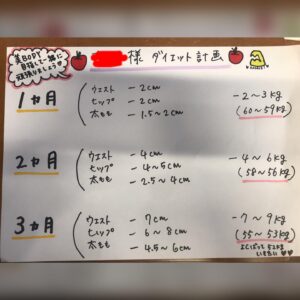 美BODY
目指して一緒に
頑張りましょう
様 ダイエット計画
1ヵ月
ウエスト - 2cm
ヒップ - 2cm
太もも - 1.5~2cm
-2~3kg
(60~59kg)
2ヵ月
ウエスト - 4cm
ヒップ - 4~5cm
太もも - 2.5~4cm
-4~6kg
(58~56kg)
3ヵ月
ウエスト - 7cm
ヒップ - 6~8cm
太もも - 4.5~6cm
-7~9kg
(55~53kg)